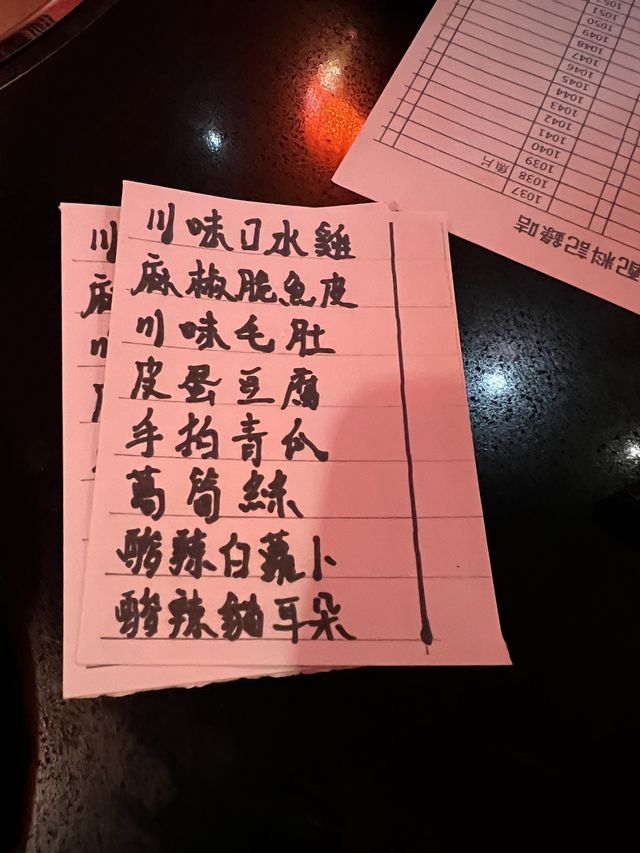 川味口水雞
麻椒脆魚皮
川味毛肚
皮蛋豆腐
手拍青瓜
萵筍絲
酸辣白蘿卜
酸辣貓耳朵
川
麻
配料記錄咭
1037 魚片
1038
1039
1040
1041
1042
1043
1044
1045
1046
1047
1048
1049
1050
1051